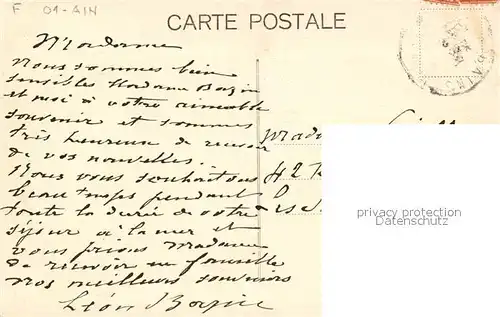 F 01-AIN
CARTE POSTALE
Madame
Nous sommes bien
sensibles Madame Bozin
et moi à votre aimable
souvenir et sommes
très heureuse de recevoir
de vos nouvelles.
Nous vous souhaitons
beau temps pendant
toute la durée de votre
séjour à la mer et
vous prions Madame
de recevoir en famille
nos meilleurs souvenirs
Léon
42
privacy protection
Datenschutz